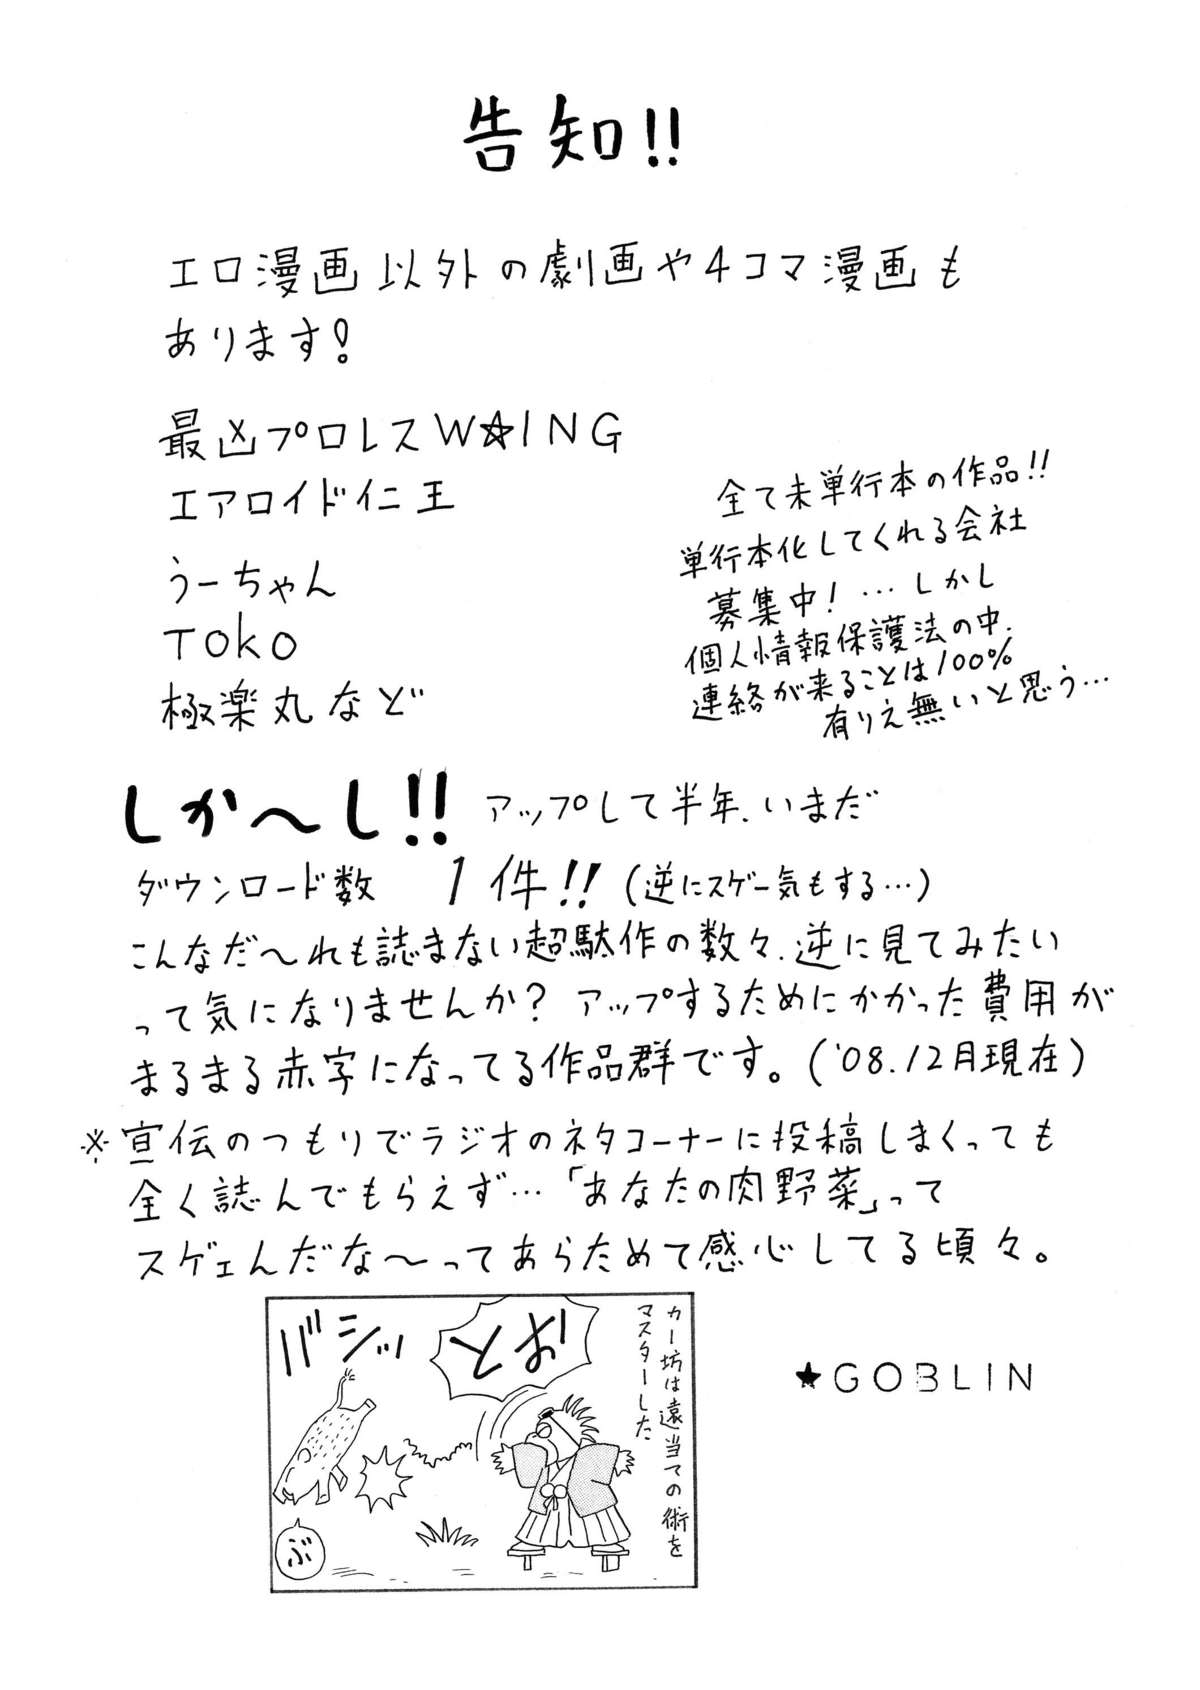 告知!!
エロ漫画以外の劇画や4コマ漫画も
あります!
最凶プロレスW☆ING
エアロイド仁王
うーちゃん
TOKO
極楽丸など
全て未単行本の作品!!
単行本化してくれる会社
募集中!…しかし
個人情報保護法の中、
連絡が来ることは100%
有りえ無いと思う…
しか〜し!! アップして半年、いまだ
ダウンロード数 1件!!(逆にスゲー気もする…)
こんなだ〜れも読まない超駄作の数々、逆に見てみたい
って気になりませんか? アップするためにかかった費用が
まるまる赤字になってる作品群です。('08.12月現在)
※宣伝のつもりでラジオのネタコーナーに投稿しまくっても
全く読んでもらえず…「あなたの肉野菜」って
スゲェんだな〜ってあらためて感心してる頃々。
カー坊は遠当ての術を
マスターした
とお
バシッ
ぶ
★GOBLIN